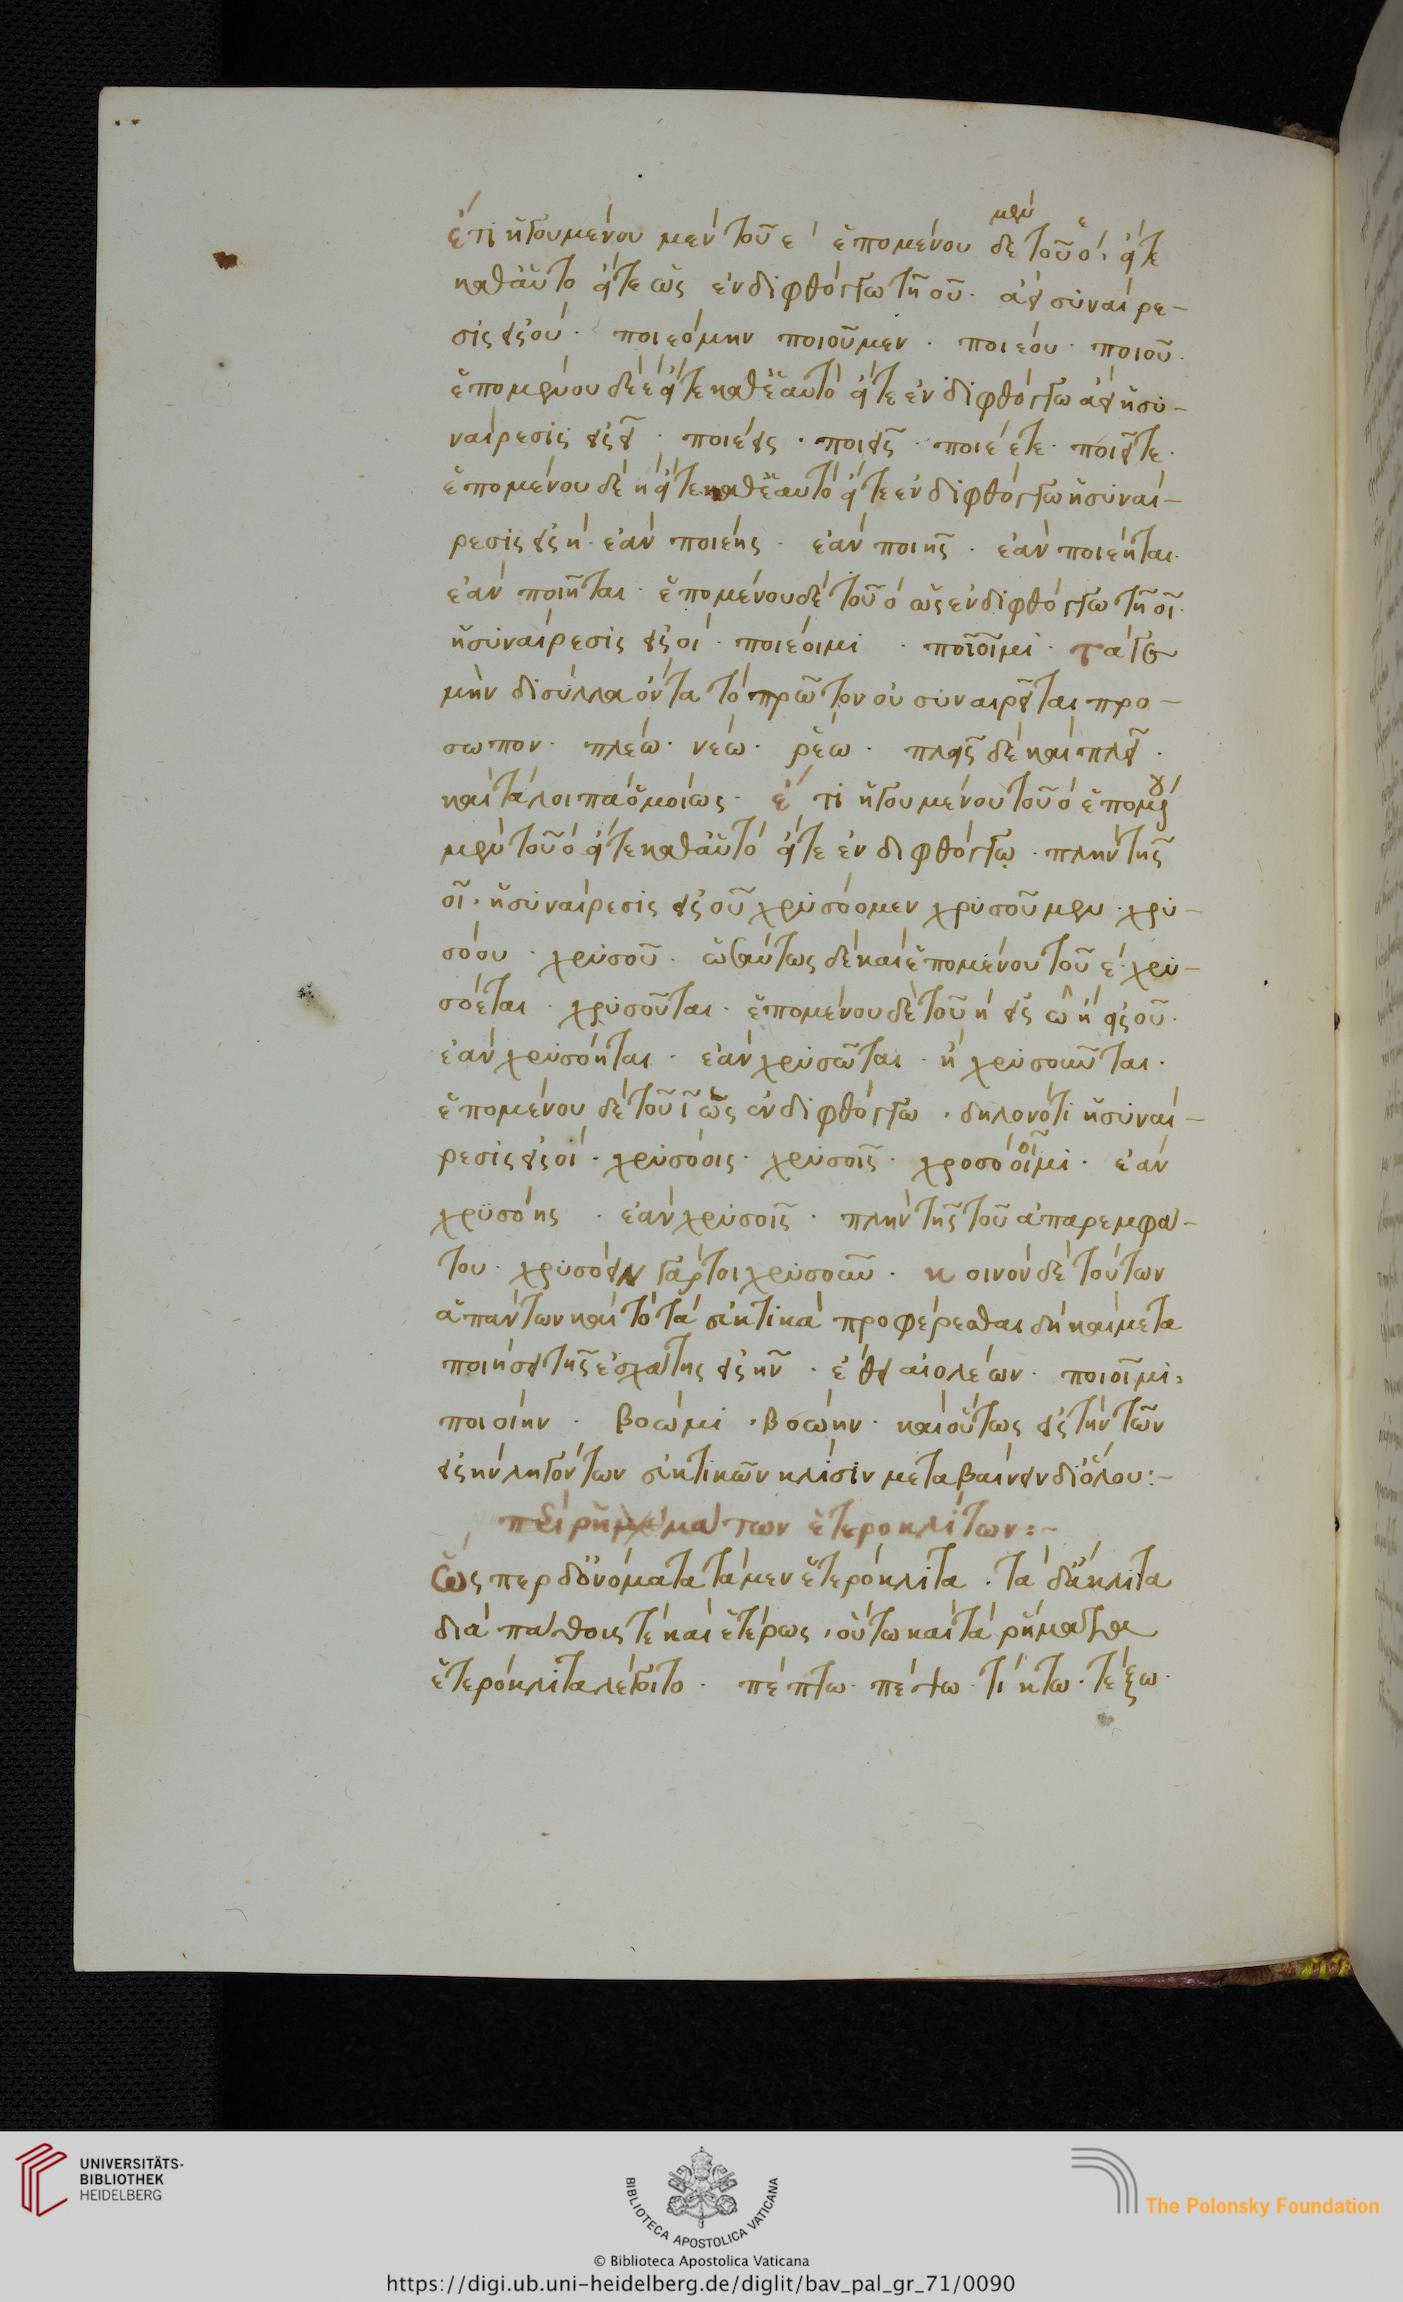 ἔτι ἡγουμένου μὲν τοῦ ε ἑπομένου δὲ μὲν τοῦ ο εἴτε
καθ αὑτὸ εἴτε ὡς ἐν διφθόγγω τῆ ου. ἀεὶ συναίρε-
σις εἰς ου. ποιεόμην ποιοῦμεν. ποιέου. ποιοῦ.
ἑπομένου δὲ ε εἴτε καθ ἑαυτὸ εἴτε ἐν διφθόγγω ἀεὶ ἡ συ-
ναίρεσις εἰς ει. ποιέεις. ποιεῖς. ποιέετε. ποιεῖτε.
ἑπομένου δὲ η εἴτε καθ ἑαυτὸ εἴτε ἐν διφθόγγω ἡ συναί-
ρεσις εἰς η. ἐὰν ποιέης. ἐὰν ποιῆς. ἐὰν ποιέηται.
ἐὰν ποιῆται. ἑπομένου δὲ τοῦ ο ὡς ἐν διφθόγγω τῆ οι.
ἡ συναίρεσις εἰς οι. ποιέοιμι. ποιοῖμι. τά γε
μὴν δισύλλα ὄντα τὸ πρῶτον οὐ συναιρεῖται προ-
σωπον. πλέω. νέω. ῥέω. πλεῖς δὲ καὶ πλεῖ.
καὶ τὰ λοιπὰ ὁμοίως. ἔτι ἡγουμένου τοῦ ο ἑπομένου
μὲν τοῦ ο εἴτε καθ αὑτὸ εἴτε ἐν διφθόγγῳ. πλὴν τῆς
οι. ἡ συναίρεσις εἰς ου χρυσόομεν χρυσοῦμεν. χρυ-
σόου. χρυσοῦ. ὡσαύτως δὲ καὶ ἑπομένου τοῦ ε. χρυ-
σόεται. χρυσοῦται. ἑπομένου δὲ τοῦ η εἰς ω ἢ εἰς ου.
ἐὰν χρυσόηται. ἐὰν χρυσῶται. ἢ χρυσοῦται.
ἑπομένου δὲ τοῦ ι ὡς ἐν διφθόγγω. δηλονότι ἡ συναί-
ρεσις εἰς οι. χρυσόοις. χρυσοῖς. χροσόοιμι οῖ. ἐὰν
χρυσόης. ἐὰν χρυσοῖς. πλὴν τῆς τοῦ ἀπαρεμφά-
του. χρυσόειν γάρ τοι χρυσοῦν. κοινὸν δὲ τούτων
ἁπάντων καὶ τὸ τὰ εὐκτικὰ προφέρεσθαι δὴ καὶ μετα
ποιήσει τῆς ἐσχάτης εἰς ην. ἔθει αἰολέων. ποιοῖμι.
ποιοίην. βοῴμι. βοῴην. καὶ οὕτως εἰς τὴν τῶν
εἰς ην ληγόντων εὐκτικῶν κλίσιν μεταβαίνειν διόλου:-
περὶ ῥημάτων ἑτεροκλίτων:-
Ὥσπερ δ ὀνόματα τὰ μὲν ἑτερόκλιτα. τὰ δ ἄκλιτα
διὰ πάθους τὲ καὶ ἑτέρως, οὕτω καὶ τὰ ῥήματα
ἑτερόκλιτα λέγοιτο. πέπτω. πέψω. τίκτω. τέξω.
UNIVERSITÄTS-
BIBLIOTHEK
HEIDELBERG
BIBLIOTECA APOSTOLICA VATICANA
The Polonsky Foundation
© Biblioteca Apostolica Vaticana
https://digi.ub.uni-heidelberg.de/diglit/bav_pal_gr_71/0090